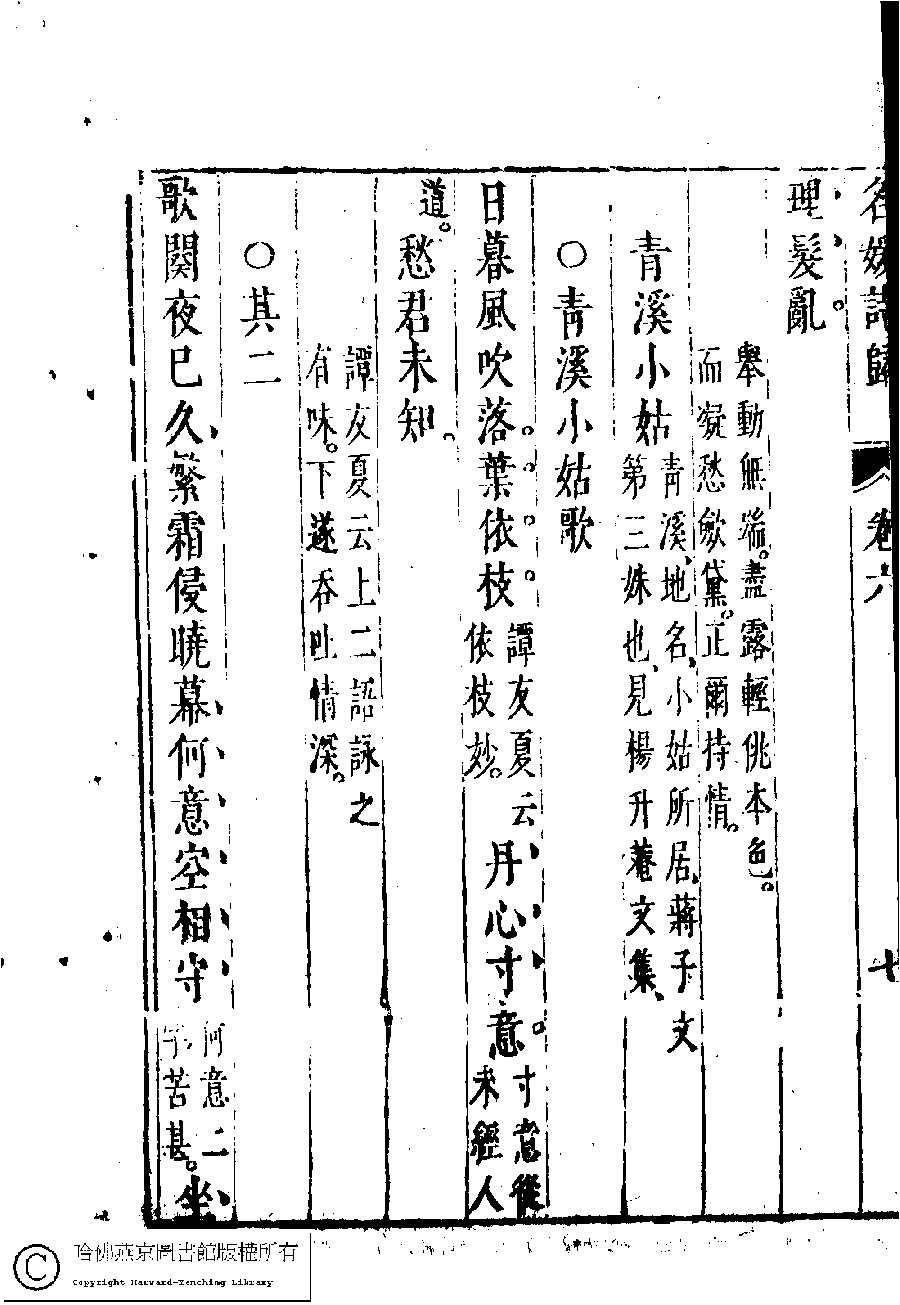 名媛詩歸 卷六 七
理髮亂。
舉動無端。盡露輕佻本色。
而凝愁斂黛。正爾持情。
青溪小姑
青溪、地名、小姑所居、蔣子文
第三妹也、見楊升菴文集、
○青溪小姑歌
日暮風吹。落葉依枝。
譚友夏云
依枝妙。
丹心寸意。
寸意後
未經人
道。
愁君未知。
譚友夏云上二語詠之
有味。下遂吞吐情深。
○其二
歌闋夜已久、繁霜侵曉幕、何意空相守
何意二
字苦甚。
坐
哈佛燕京圖書館版權所有
Copyright Harvard-Yenching Library